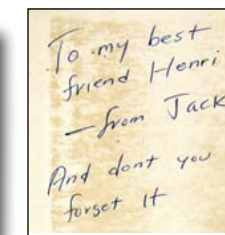 To my best
friend Henri
— from Jack
And dont you
forget it